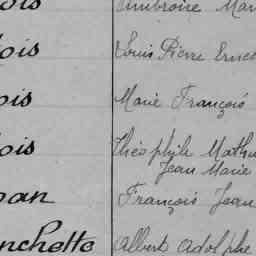 ois Ambroise Mari
ois Louis Pierre Ernes
ois Marie François
ois Théophile Mathu
Jean Marie
pan François Jean
nchette Albert Adolphe